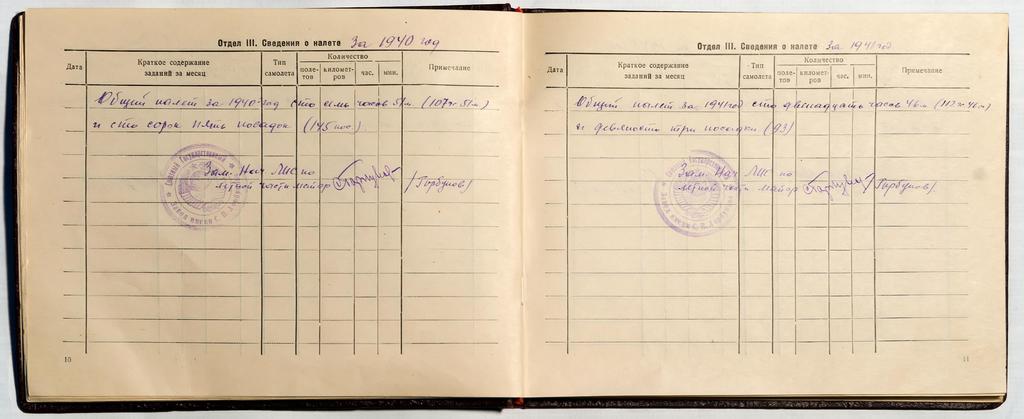 Отдел III. Сведения о налете за 1940 год
Дата
Краткое содержание заданий за месяц
Тип самолета
Количество
поле-тов
километ-ров
час.
мин.
Примечание
Общий налет за 1940 год сто семь часов 51 м. (107 ч. 51 м.)
и сто сорок пять посадок (145 пос.).
Зам. Нач ЛИС по
летной части майор /Горбунов/
Завод имени С. П. Горбунова
10
Отдел III. Сведения о налете за 1941 год
Дата
Краткое содержание заданий за месяц
Тип самолета
Количество
поле-тов
километ-ров
час.
мин.
Примечание
Общий налет за 1941 год сто двенадцать часов 46 м (112 ч. 46 м)
и девяносто три посадки (93)
Зам. Нач ЛИС по
летной части майор /Горбунов/
Завод имени С. П. Горбунова
11